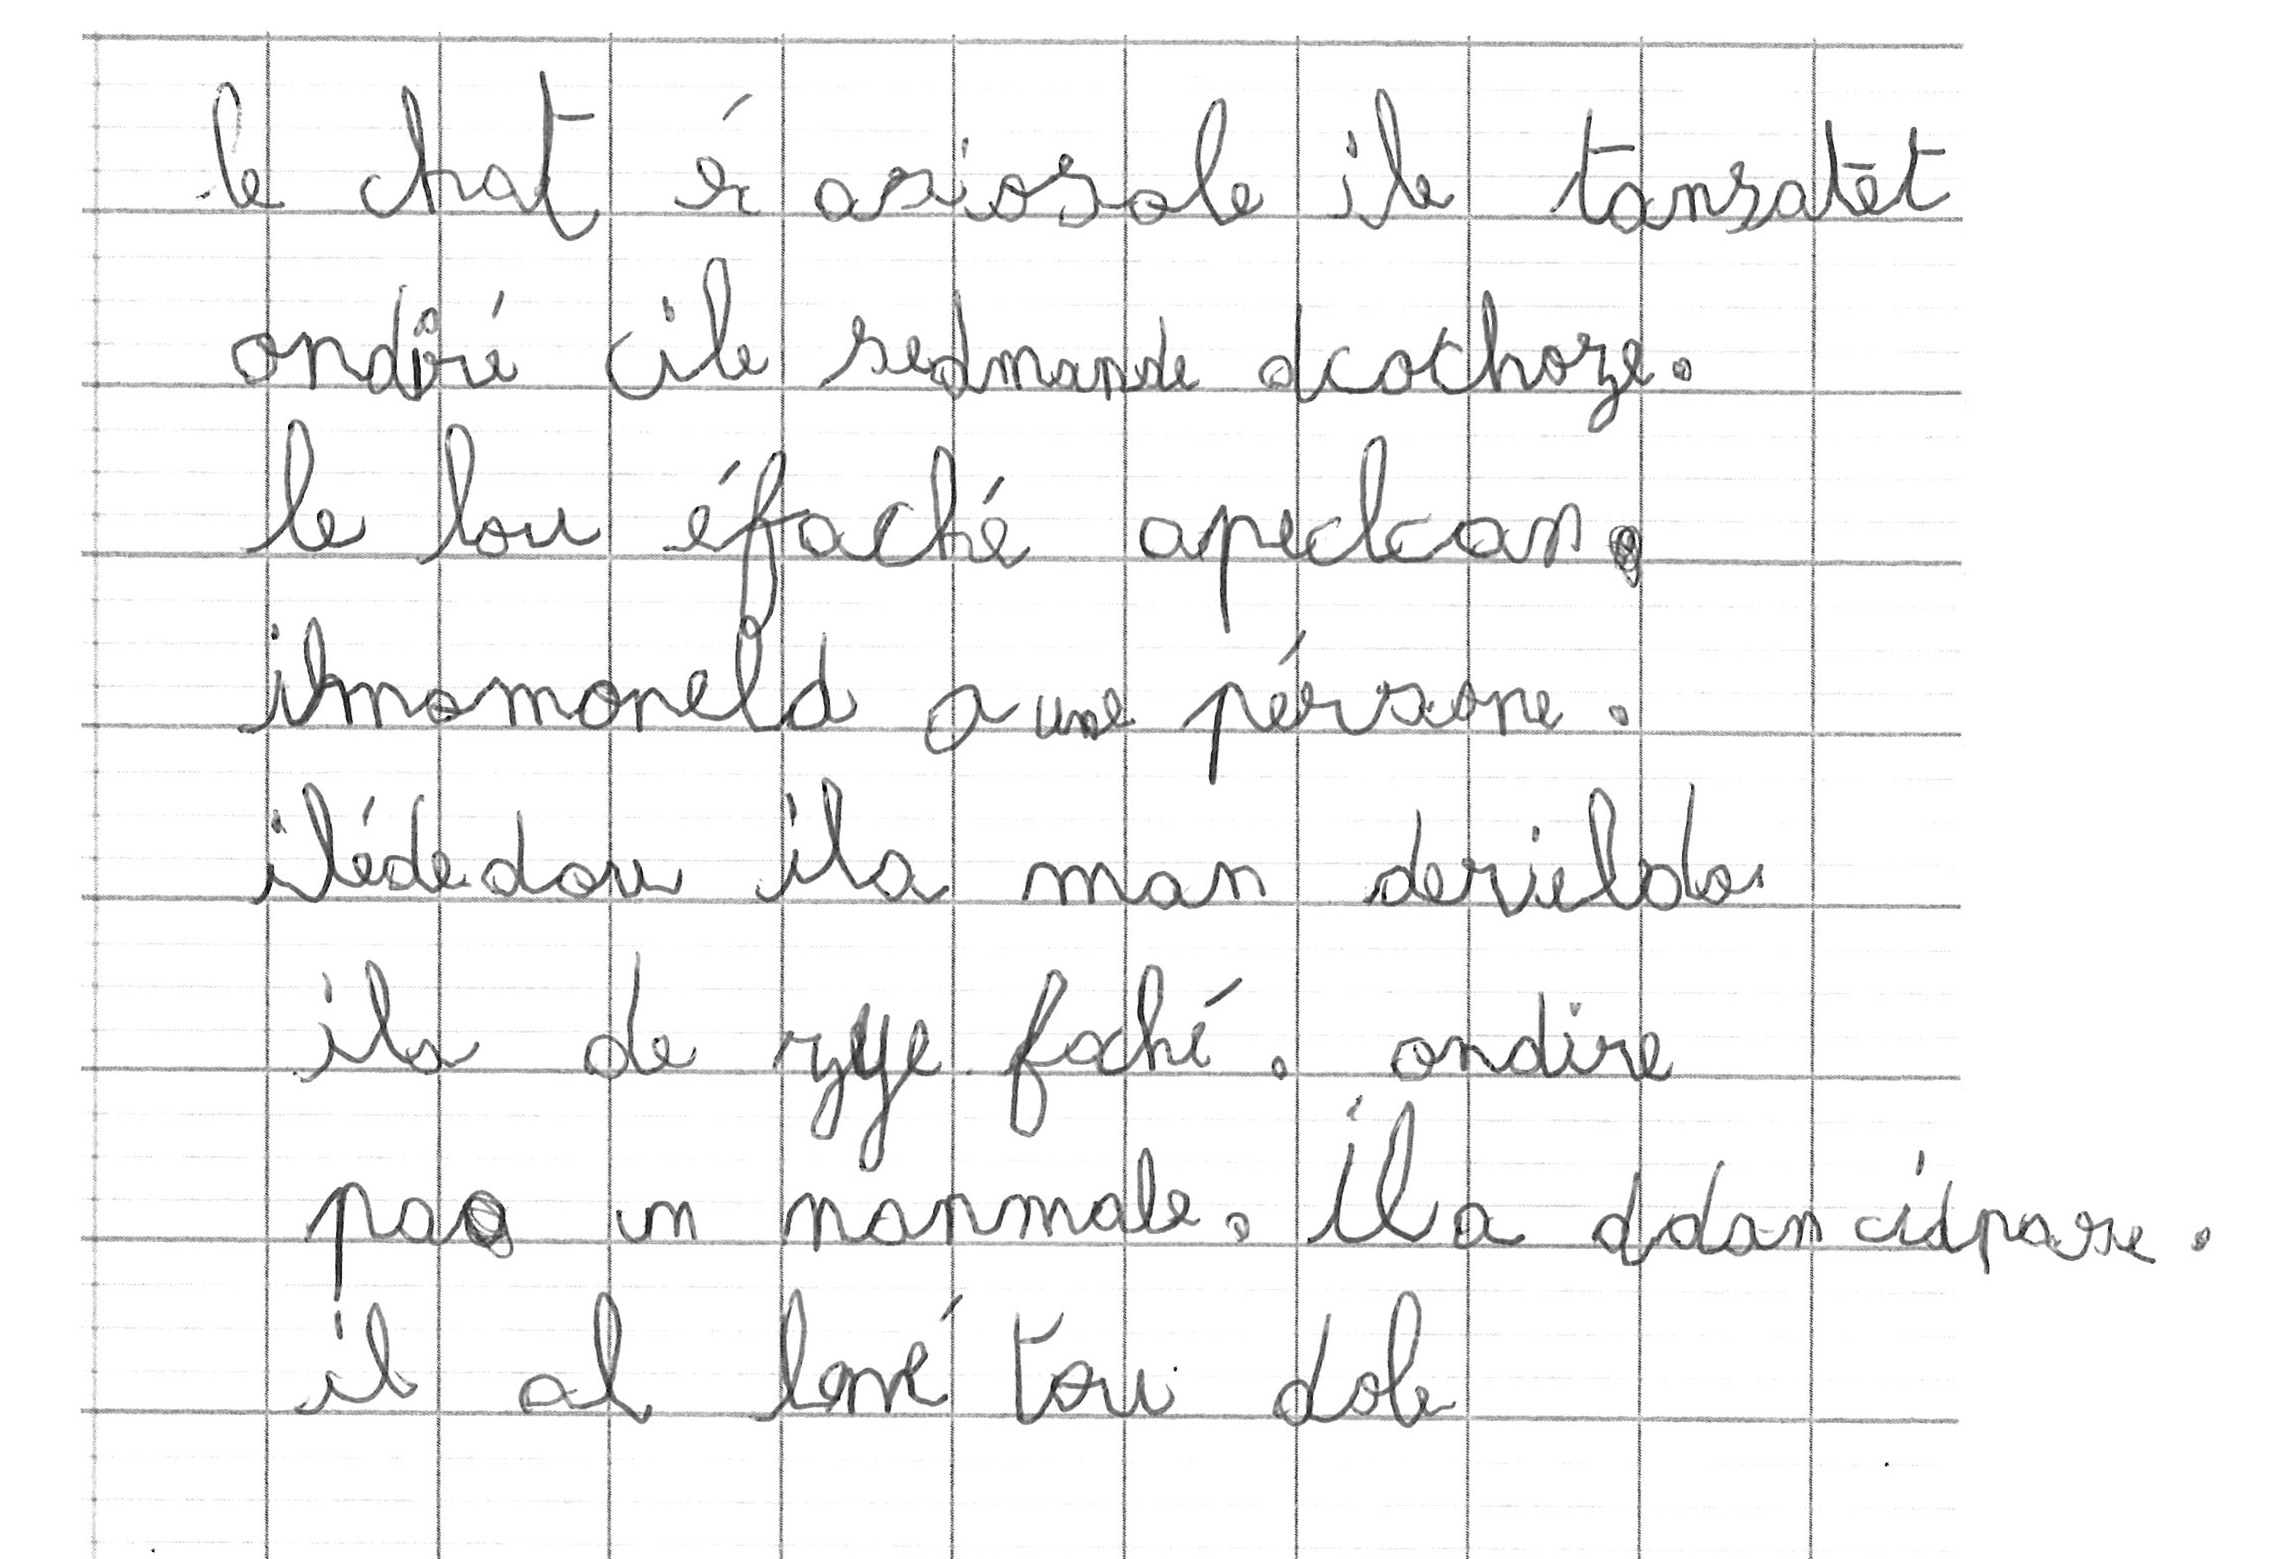 le chat é asiosole ile tansatèt
ondiré cile sedmande dcothoze.
le lou éfaché apedcan.
ilmomoneld a une pérsone.
ilédedou ila man derielda
ila de yye faché. ondire
pas un nanmale. il a ddan cidpare.
il al lené tou dole